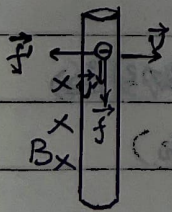 f⃗' ⊖ v⃗
× u⃗
× f⃗
B×